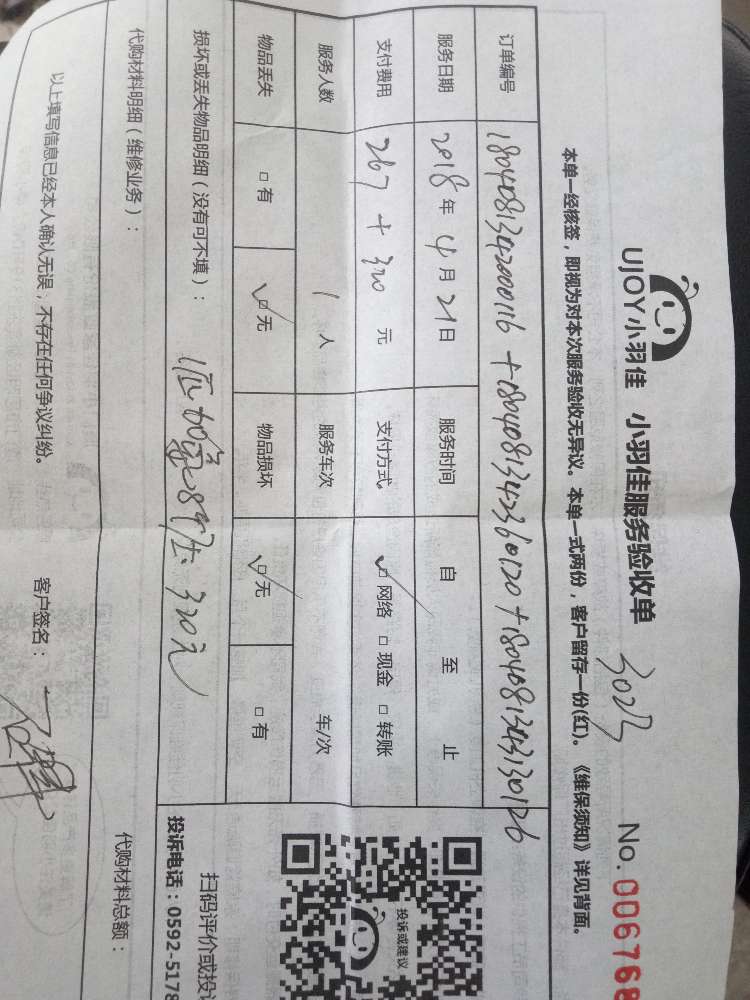 UJOY小羽佳 小羽佳服务验收单 No. 006768
本单一经核签，即视为对本次服务验收无异议。本单一式两份，客户留存一份(红)。《维保须知》详见背面。
订单编号 1804081342000116 + 1804081342360120 + 1804081343130126
服务日期 2018年4月21日 服务时间 自 至 止
支付费用 267 + 320 元 支付方式 ☑网络 □现金 □转账
服务人数 1 人 服务车次 车/次
物品丢失 □有 ☑无 物品损坏 ☑无 □有
损坏或丢失物品明细（没有可不填）： 320元
代购材料明细（维修业务）： 代购材料总额：
以上填写信息已经本人确认无误，不存在任何争议纠纷。 客户签名：
投诉或建议
扫码评价或投
投诉电话：0592-5178